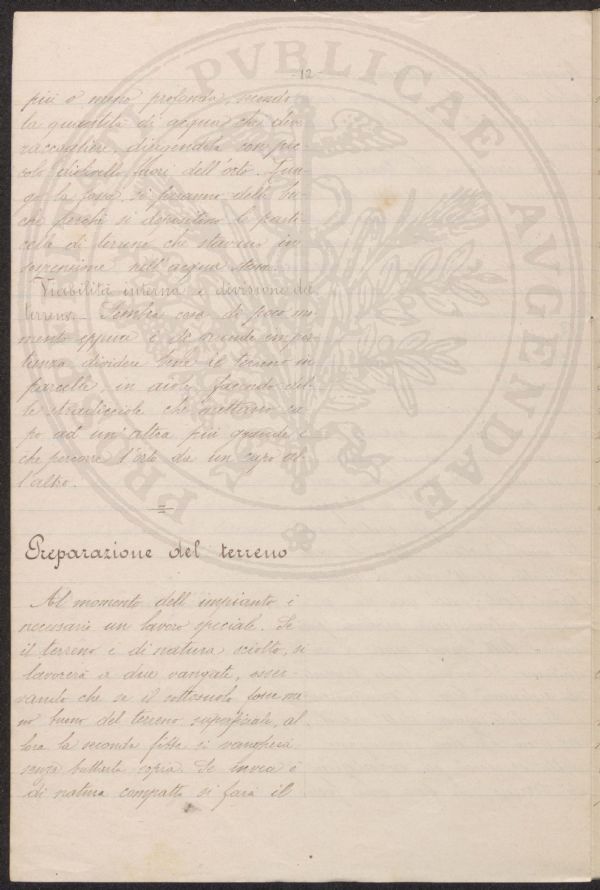 - 12 -
più o meno profonda, secondo
la quantità di acqua che deve
raccogliere, diversandola con pic
colo fuori dell'orto. Lun-
go la fossa si faranno delle bu-
che perchè si depositino le parti
celle di terreno che stavano in
sospensione nell'acqua stessa.
Viabilità interna e divisione del
terreno. Sembra cosa di poco mo-
mento eppure è di grande impor
tanza dividere bene il terreno in
parcelle, in aiole, facendo del
le stradicciole che mettano ca
po ad un'altra più grande e
che percorre l'orto da un capo al
l'altro.
Preparazione del terreno
Al momento dell'impianto è
necessario un lavoro speciale. Se
il terreno è di natura sciolto, si
lavorerà a due vangate, osser-
vando che se il sottosuolo fosse me
no buono del terreno superficiale, al
lora la seconda fitta si vangherà
senza buttarla sopra. Se invece è
di natura compatto si farà il
PVBLICAE AVGENDAE